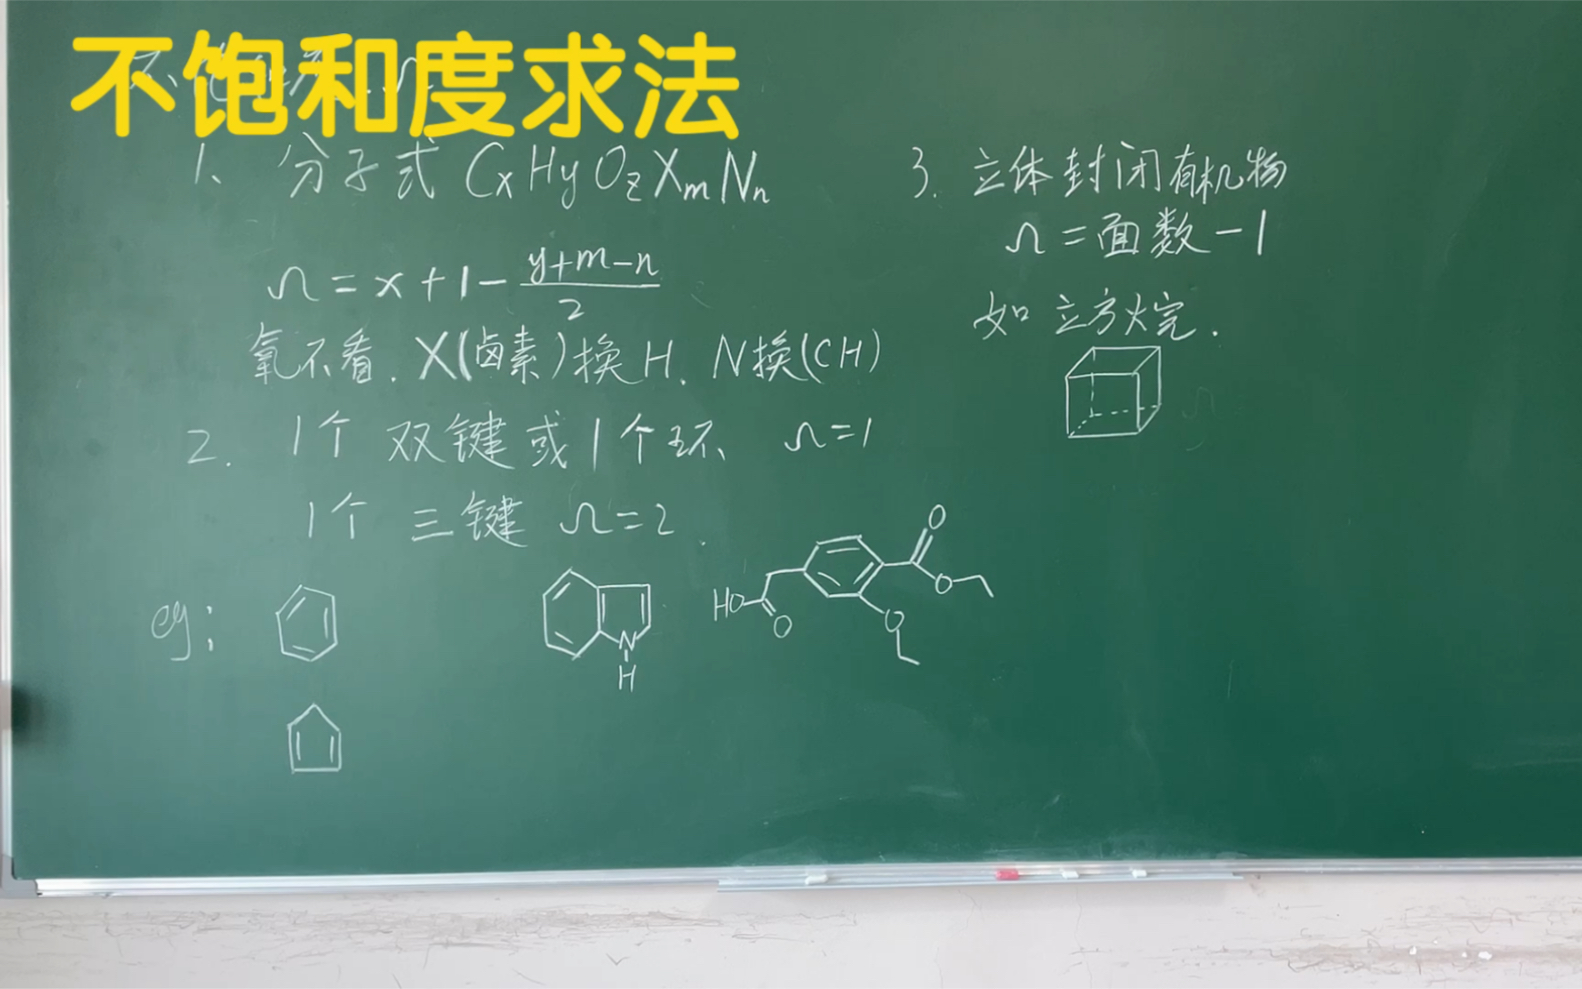 不饱和度求法
1、分子式 CxHyOzXmNn
Ω = x + 1 - (y+m-n)/2
氧不看. X(卤素)换H. N换(CH)
2. 1个 双键 或 1个环 Ω=1
1个 三键 Ω=2.
eg:
N
H
HO
O
O
O
O
3. 立体封闭有机物
Ω = 面数 - 1
如 立方烷.